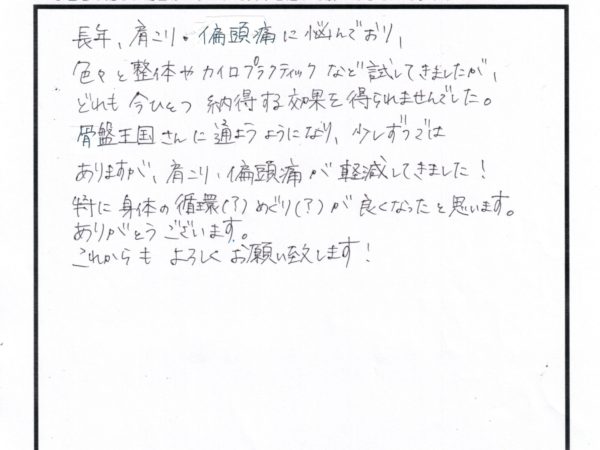 長年、肩こり・偏頭痛に悩んでおり、
色々と整体やカイロプラクティックなど試してきましたが、
どれも今ひとつ納得する効果を得られませんでした。
骨盤王国さんに通うようになり、少しずつでは
ありますが、肩こり・偏頭痛が軽減してきました！
特に身体の循環(？)めぐり(？)が良くなったと思います。
ありがとうございます。
これからもよろしくお願い致します！